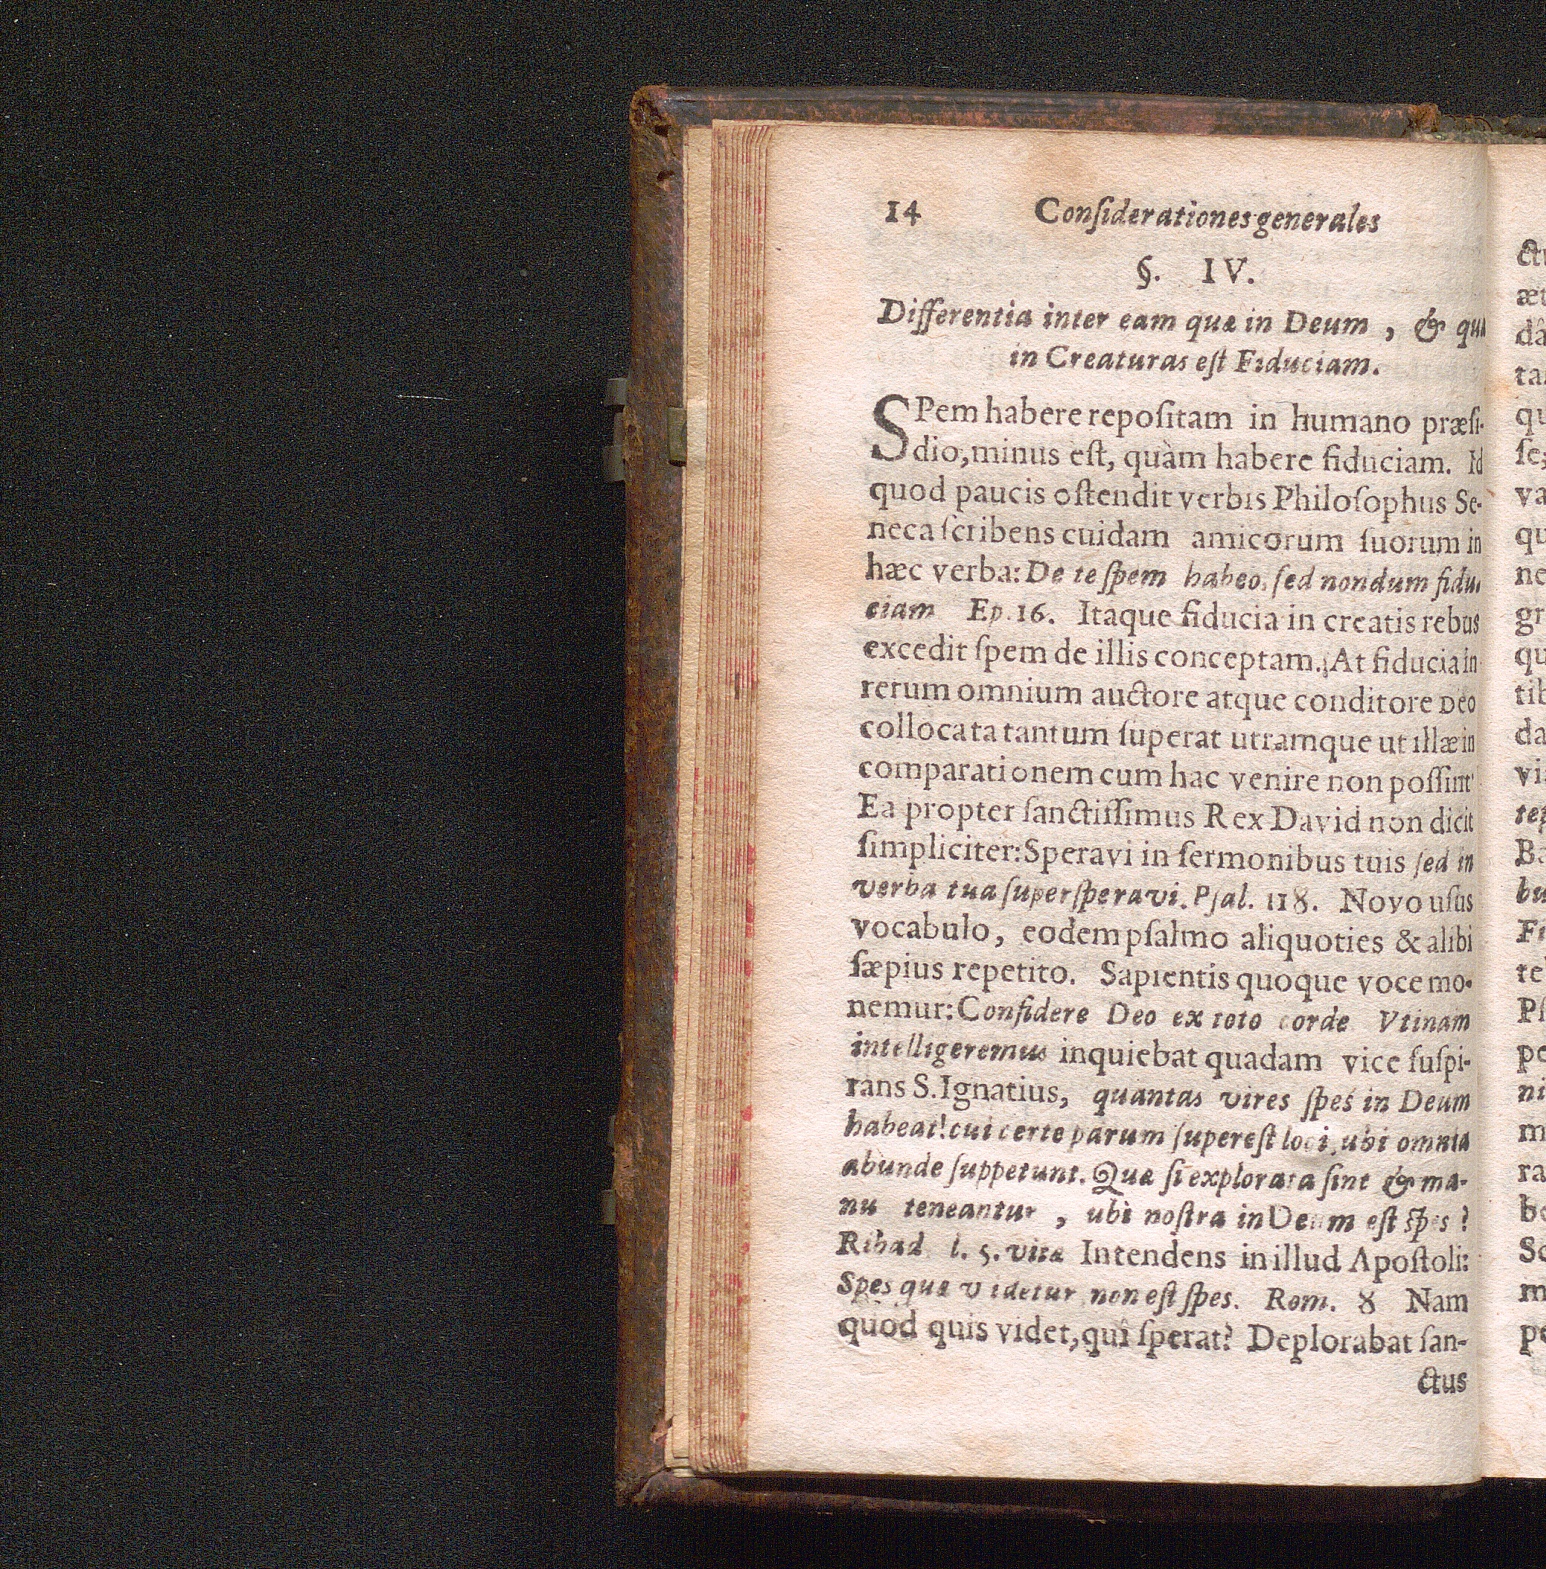 14 Conſiderationes generales
§. IV.
Differentia inter eam quæ in Deum , & quæ
in Creaturas eſt Fiduciam.
SPem habere repoſitam in humano præſi-
dio, minus eſt, quàm habere fiduciam. Id
quod paucis oſtendit verbis Philoſophus Se-
neca ſcribens cuidam amicorum ſuorum in
hæc verba: De te ſpem habeo, ſed nondum fidu-
ciam Ep. 16. Itaque fiducia in creatis rebus
excedit ſpem de illis conceptam. At fiducia in
rerum omnium auctore atque conditore DEO
collocata tantum ſuperat utramque ut illæ in
comparationem cum hac venire non poſſint
Ea propter ſanctiſſimus Rex David non dicit
ſimpliciter: Speravi in ſermonibus tuis ſed in
verba tua ſuperſperavi. Pſal. 118. Novo uſus
vocabulo, eodem pſalmo aliquoties & alibi
ſæpius repetito. Sapientis quoque voce mo-
nemur: Confidere Deo ex toto corde Vtinam
intelligeremus inquiebat quadam vice ſuſpi-
rans S. Ignatius, quantas vires ſpes in Deum
habeat! cui certe parum ſupereſt loci, ubi omnia
abunde ſuppetunt. Quæ ſi explorata ſint & ma-
nu teneantur , ubi noſtra in Deum eſt ſpes ?
Ribad l. 5. vitæ Intendens in illud Apoſtoli:
Spes quæ videtur non eſt ſpes. Rom. 8 Nam
quòd quis videt, quî ſperat? Deplorabat ſan-
ctus